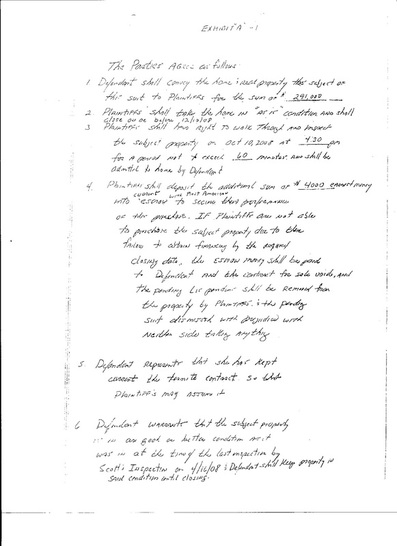 EXHIBIT "A" - 1
The Parties Agree as follows:
1. Defendant shall convey the home & real property the subject of
this suit to Plaintiffs for the sum of $ 241,000
2. Plaintiffs shall take the home in "as is" condition and shall
close on or before 12/10/08
3. Plaintiffs shall have right to walk through and inspect
the subject property on Oct 10, 2008 at 4:30 pm
for a period not to exceed 60 minutes and shall be
admitted to home by Defendant
4. Plaintiffs shall deposit the additional sum of $ 4000 earnest money
current
with escrow to secure their performance
of this purchase. If Plaintiffs are not able
to purchase the subject property due to their
failure to obtain financing by the agreed
closing date, the escrow money shall be paid
to Defendant and the contract for sale voids, and
the pending Lis pendens shall be removed from
the property by Plaintiffs & the pending
suit dismissed with prejudice with
neither sides taking anything
5. Defendant represents that she has kept
current the termite contract so that
Plaintiffs may assume it
6 Defendant warrants that the subject property
is in as good or better condition as it
was in at the time of the last inspection by
Scott's Inspection on 4/16/08 & Defendant shall keep property in
said condition until closing.